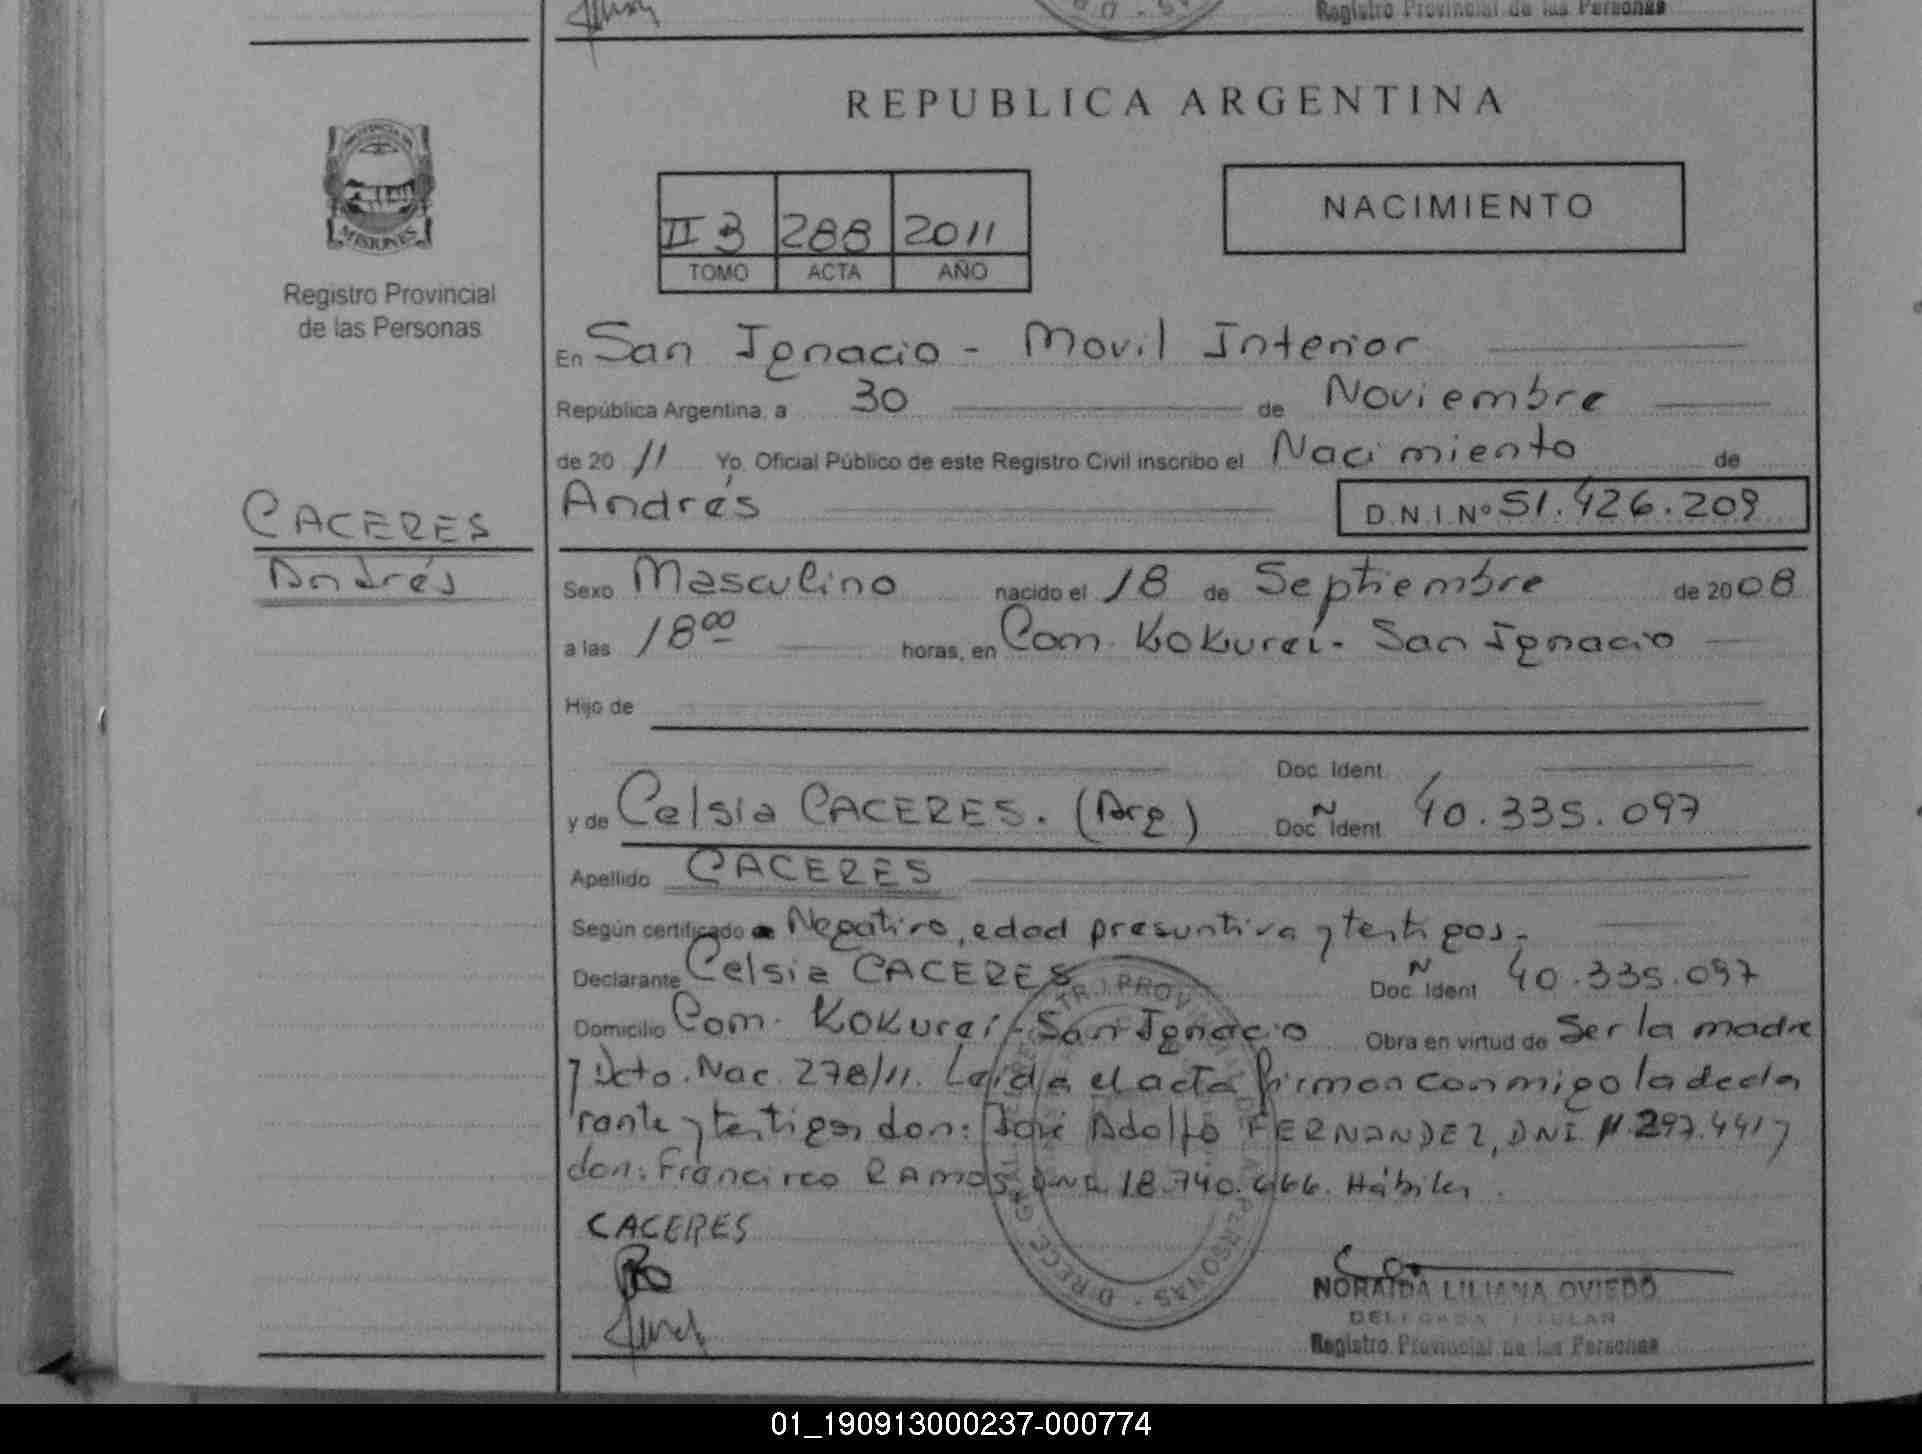 Registro Provincial de las Personas
REPUBLICA ARGENTINA
PROVINCIA DE
MISIONES
Registro Provincial
de las Personas
II 3 288 2011
TOMO ACTA AÑO
NACIMIENTO
En San Ignacio - Movil Interior
República Argentina, a 30 de Noviembre
de 20 11 Yo, Oficial Público de este Registro Civil inscribo el Nacimiento de
CACERES
Andrés
Andrés D.N.I.Nº 51.426.209
Sexo Masculino nacido el 18 de Septiembre de 2008
a las 18 00 horas, en Com. Kokureí - San Ignacio
Hijo de
Doc. Ident.
y de Celsia CACERES. (Arg) Doc. Ñ Ident. 40.335.097
Apellido CACERES
Según certificado Negativo, edad presuntiva y testigos.-
Declarante Celsia CACERES Doc. Ñ Ident. 40.335.097
Domicilio Com. Kokureí - San Ignacio Obra en virtud de Ser la madre
y Dcto. Nac. 278/11. Leída el acta firman conmigo la decla
rante y testigos don: José Adolfo FERNANDEZ, DNI. 297.441 y
don: Francisco RAMOS, 18.740.466. Hábiles.
CACERES
NORAIDA LILIANA OVIEDO
DELEGADA TITULAR
Registro Provincial de las Personas
01_190913000237-000774